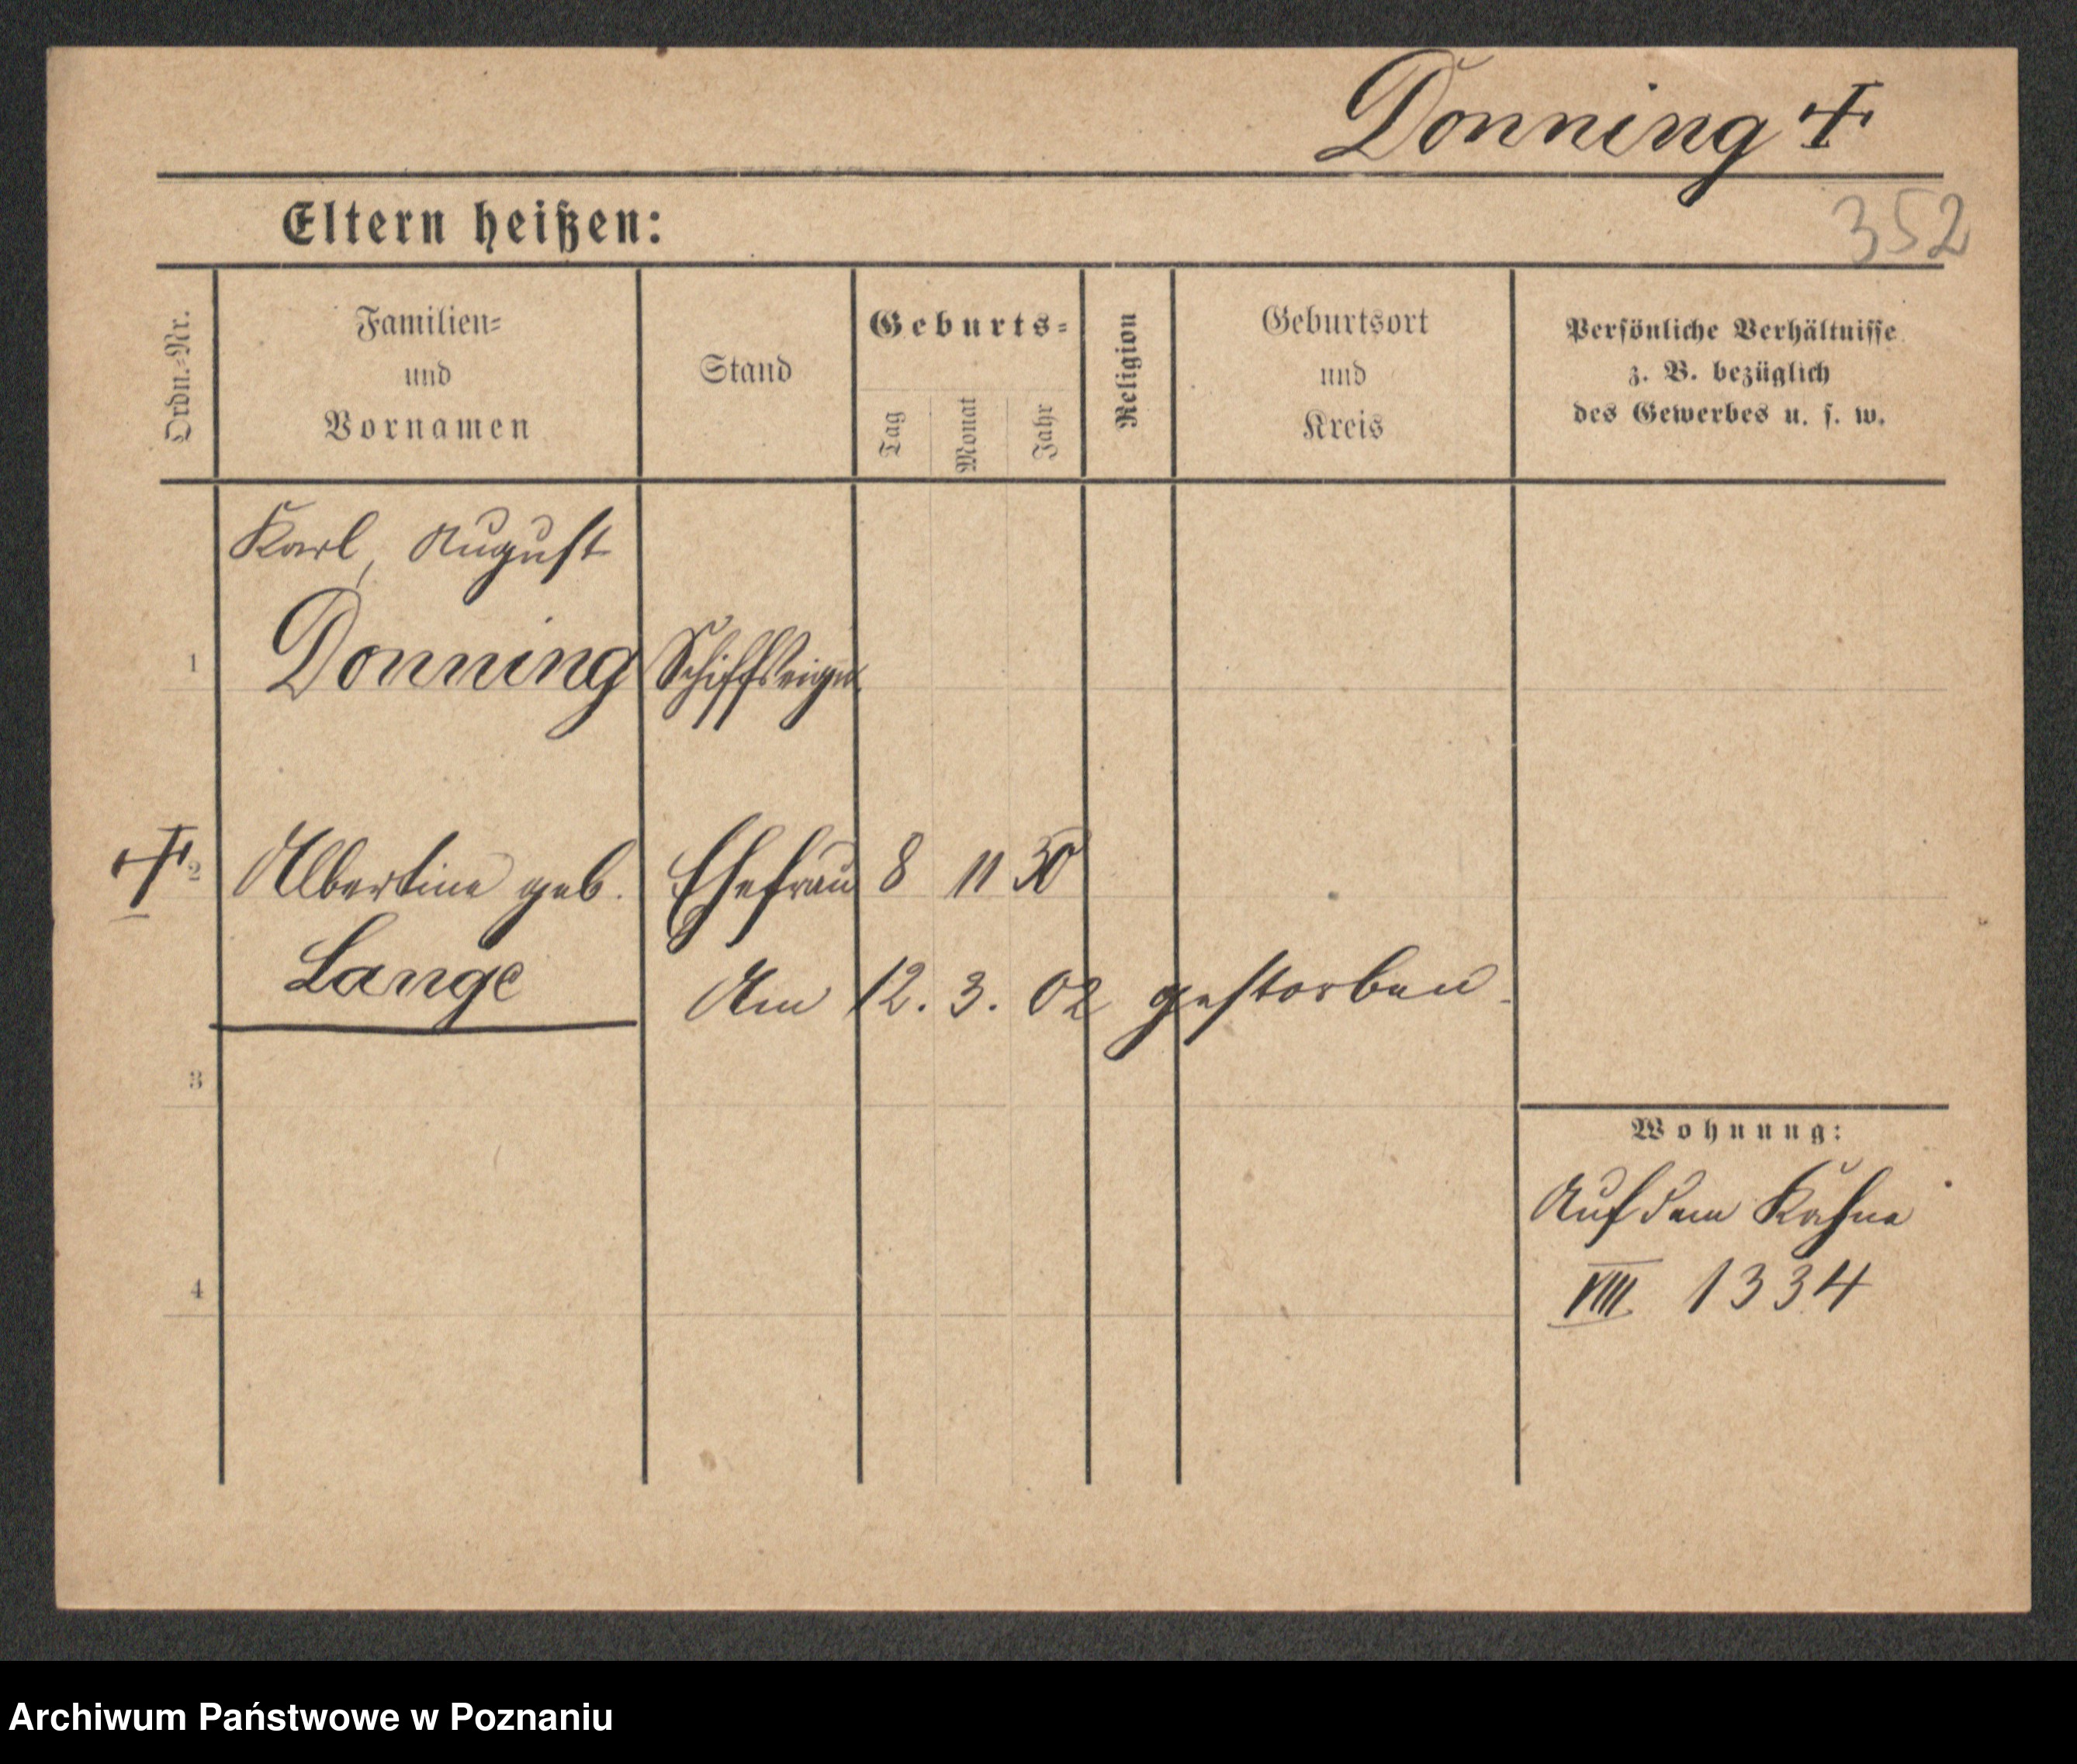 Donning †
352
Eltern heißen:
Ordn.-Nr.
Familien-
und
Vornamen
Stand
Geburts-
Tag
Monat
Jahr
Religion
Geburtsort
und
Kreis
Persönliche Verhältnisse
z. B. bezüglich
des Gewerbes u. s. w.
Karl, August
1 Donning Schiffseign.
† 2 Albertine geb. Ehefrau 8 11 30
Lange Am 12. 3. 02 gestorben.
3
Wohnung:
Auf dem Kahne
4 VIII. 1334
Archiwum Państwowe w Poznaniu